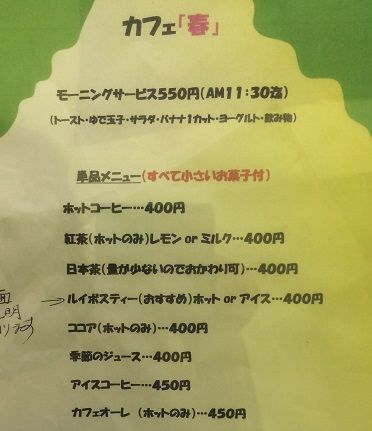 カフェ「春」
モーニングサービス550円(AM11:30迄)
(トースト・ゆで玉子・サラダ・バナナ1カット・ヨーグルト・飲み物)
単品メニュー(すべて小さいお菓子付)
ホットコーヒー…400円
紅茶(ホットのみ)レモン or ミルク…400円
日本茶(量が少ないのでおかわり可)…400円
→ルイボスティー(おすすめ)ホット or アイス…400円
ココア(ホットのみ)…400円
季節のジュース…400円
アイスコーヒー…450円
カフェオーレ (ホットのみ)…450円
明
ります